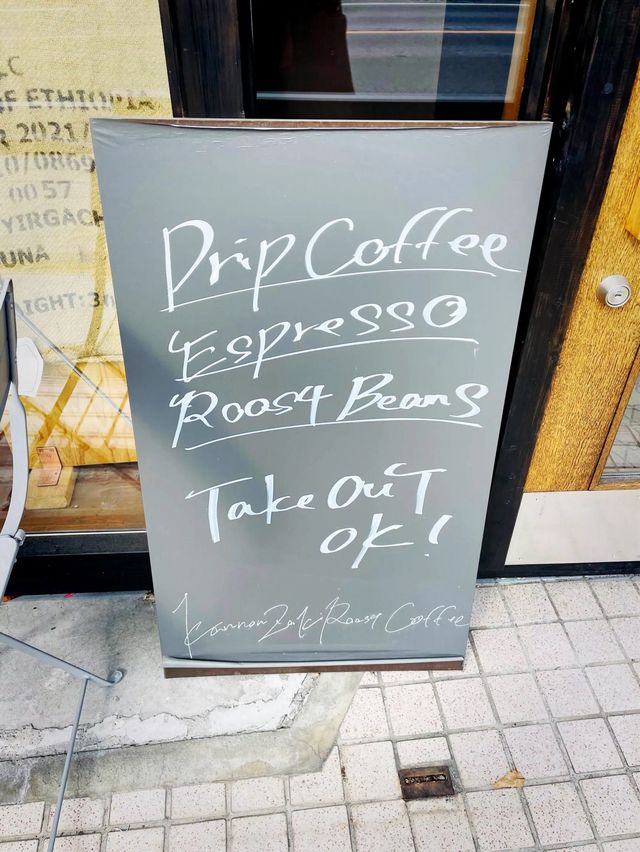 C
OF ETHIOPIA
R 2021/
0/0869
0057
YIRGACH
UNA
IGHT:30
Drip Coffee
Espresso
Roast Beans
Take OuT
OK!
Kannon Zaki Roast Coffee